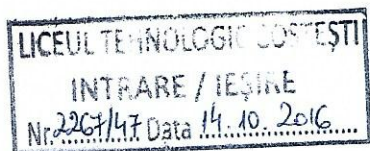 LICEUL TEHNOLOGIC COSTEȘTI
INTRARE / IEȘIRE
Nr. 2267/47 Data 14.10.2016